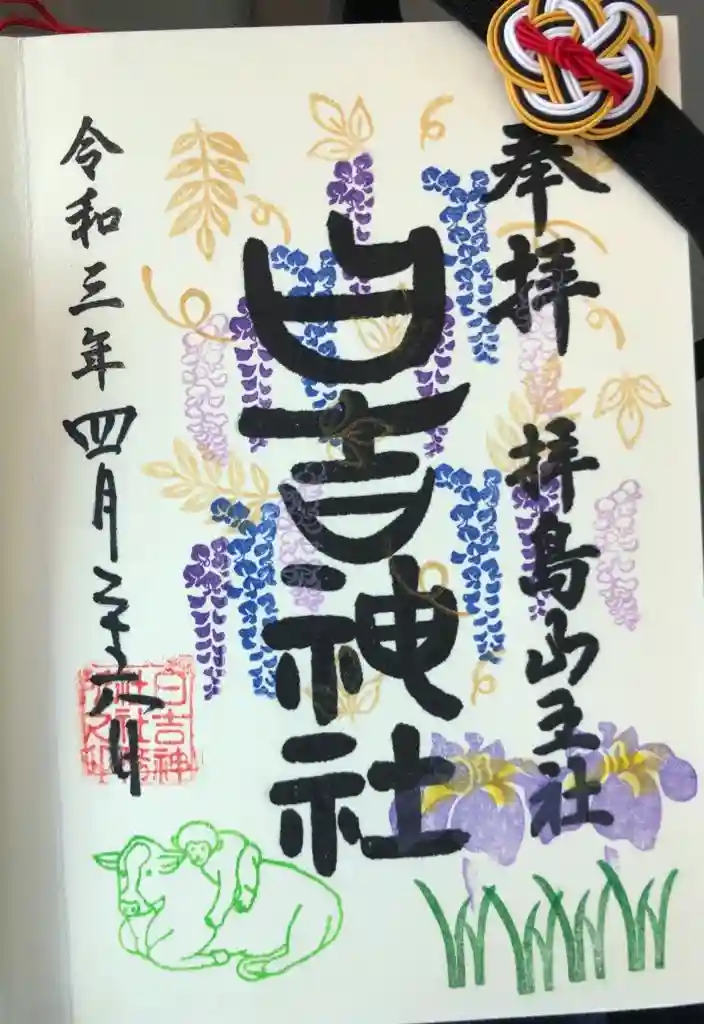 奉拝 拝島山王社
日吉神社
令和三年四月二十六日